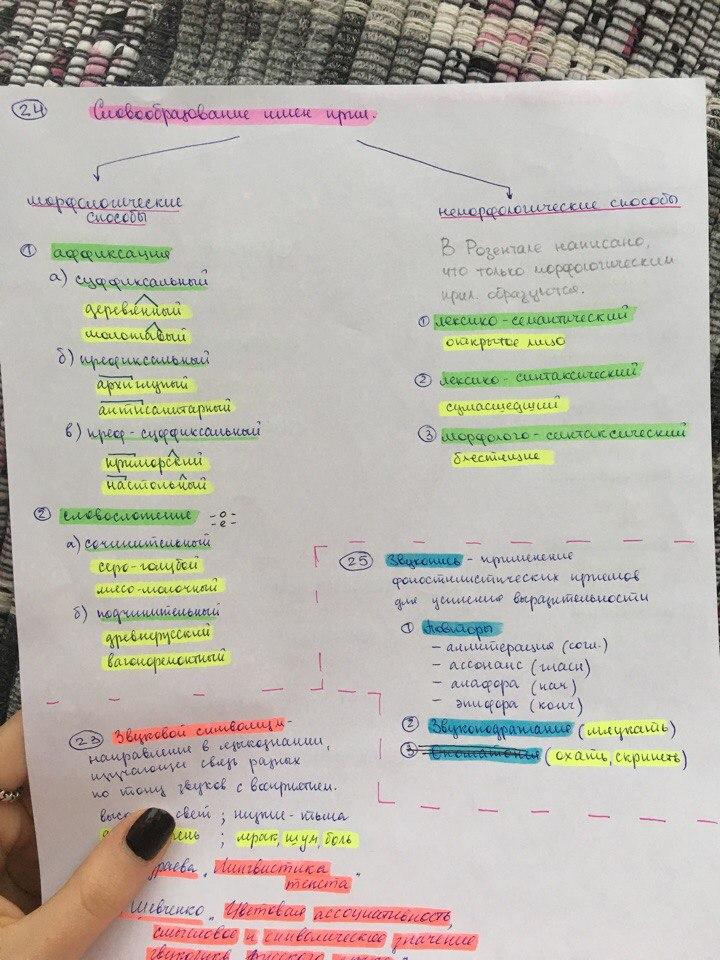 24 Словообразование имен прил.
морфологические
способы
① аффиксация
а) суффиксальный
деревянный
молотавый
б) префиксальный
архиглупый
антисанитарный
в) преф-суффиксальный
приморский
настольный
② словосложение -о- -е-
а) сочинительный
серо-голубой
мясо-молочный
б) подчинительный
древнерусский
вагоноремонтный
неморфологические способы
В Розентале написано,
что только морфологическим
прил. образуются.
① лексико-семантический
открытое лицо
② лексико-синтаксический
сумасшедший
③ морфолого-синтаксический
блестящие
25 Звукопись - применение
фоностилистических приемов
для усиления выразительности
① Повторы
- аллитерация (согл.)
- ассонанс (гласн)
- анафора (нач)
- эпифора (конч)
② Звукоподражание (мяукать)
③ (охать, скрипеть)
23 Звуковой символизм -
направление в языкознании,
изучающее связь разных
по тону звуков с восприятием.
свет ; низкие - тьма
день ; мрак, шум, боль
раева „Лингвистика
текста"
Шевченко „Цветовая ассоциативность,
смысловое и символическое значение